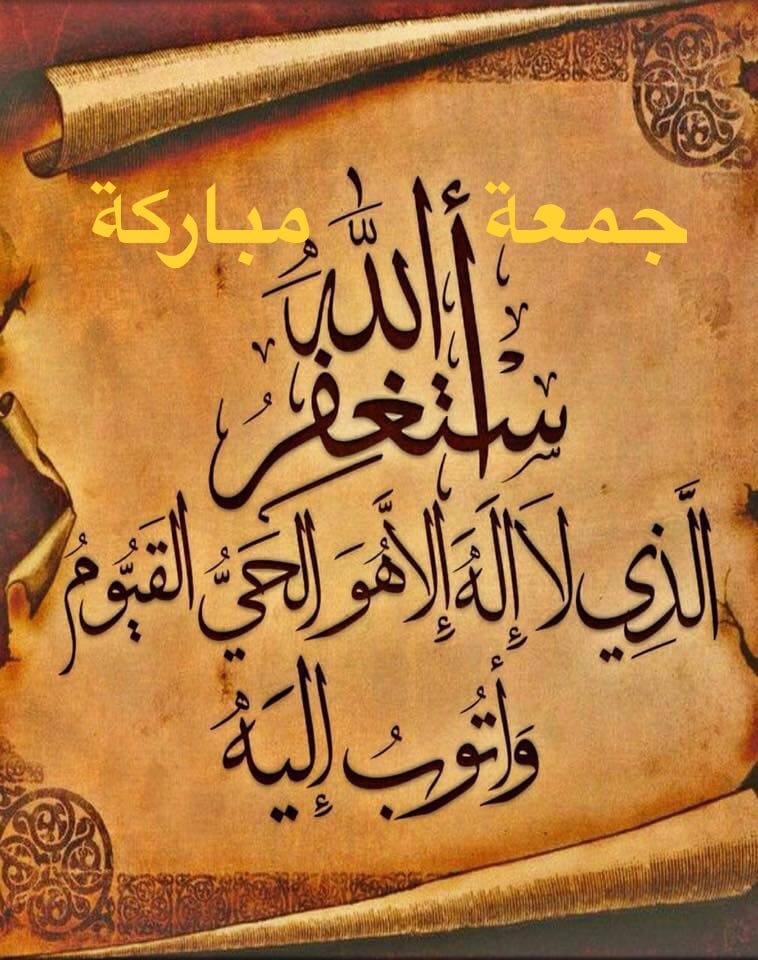 جمعة مباركة
أَسْتَغْفِرُ اللهَ
الَّذِي لَا إِلَهَ إِلَّا هُوَ الحَيُّ القَيُّومُ
وَأَتُوبُ إِلَيهِ